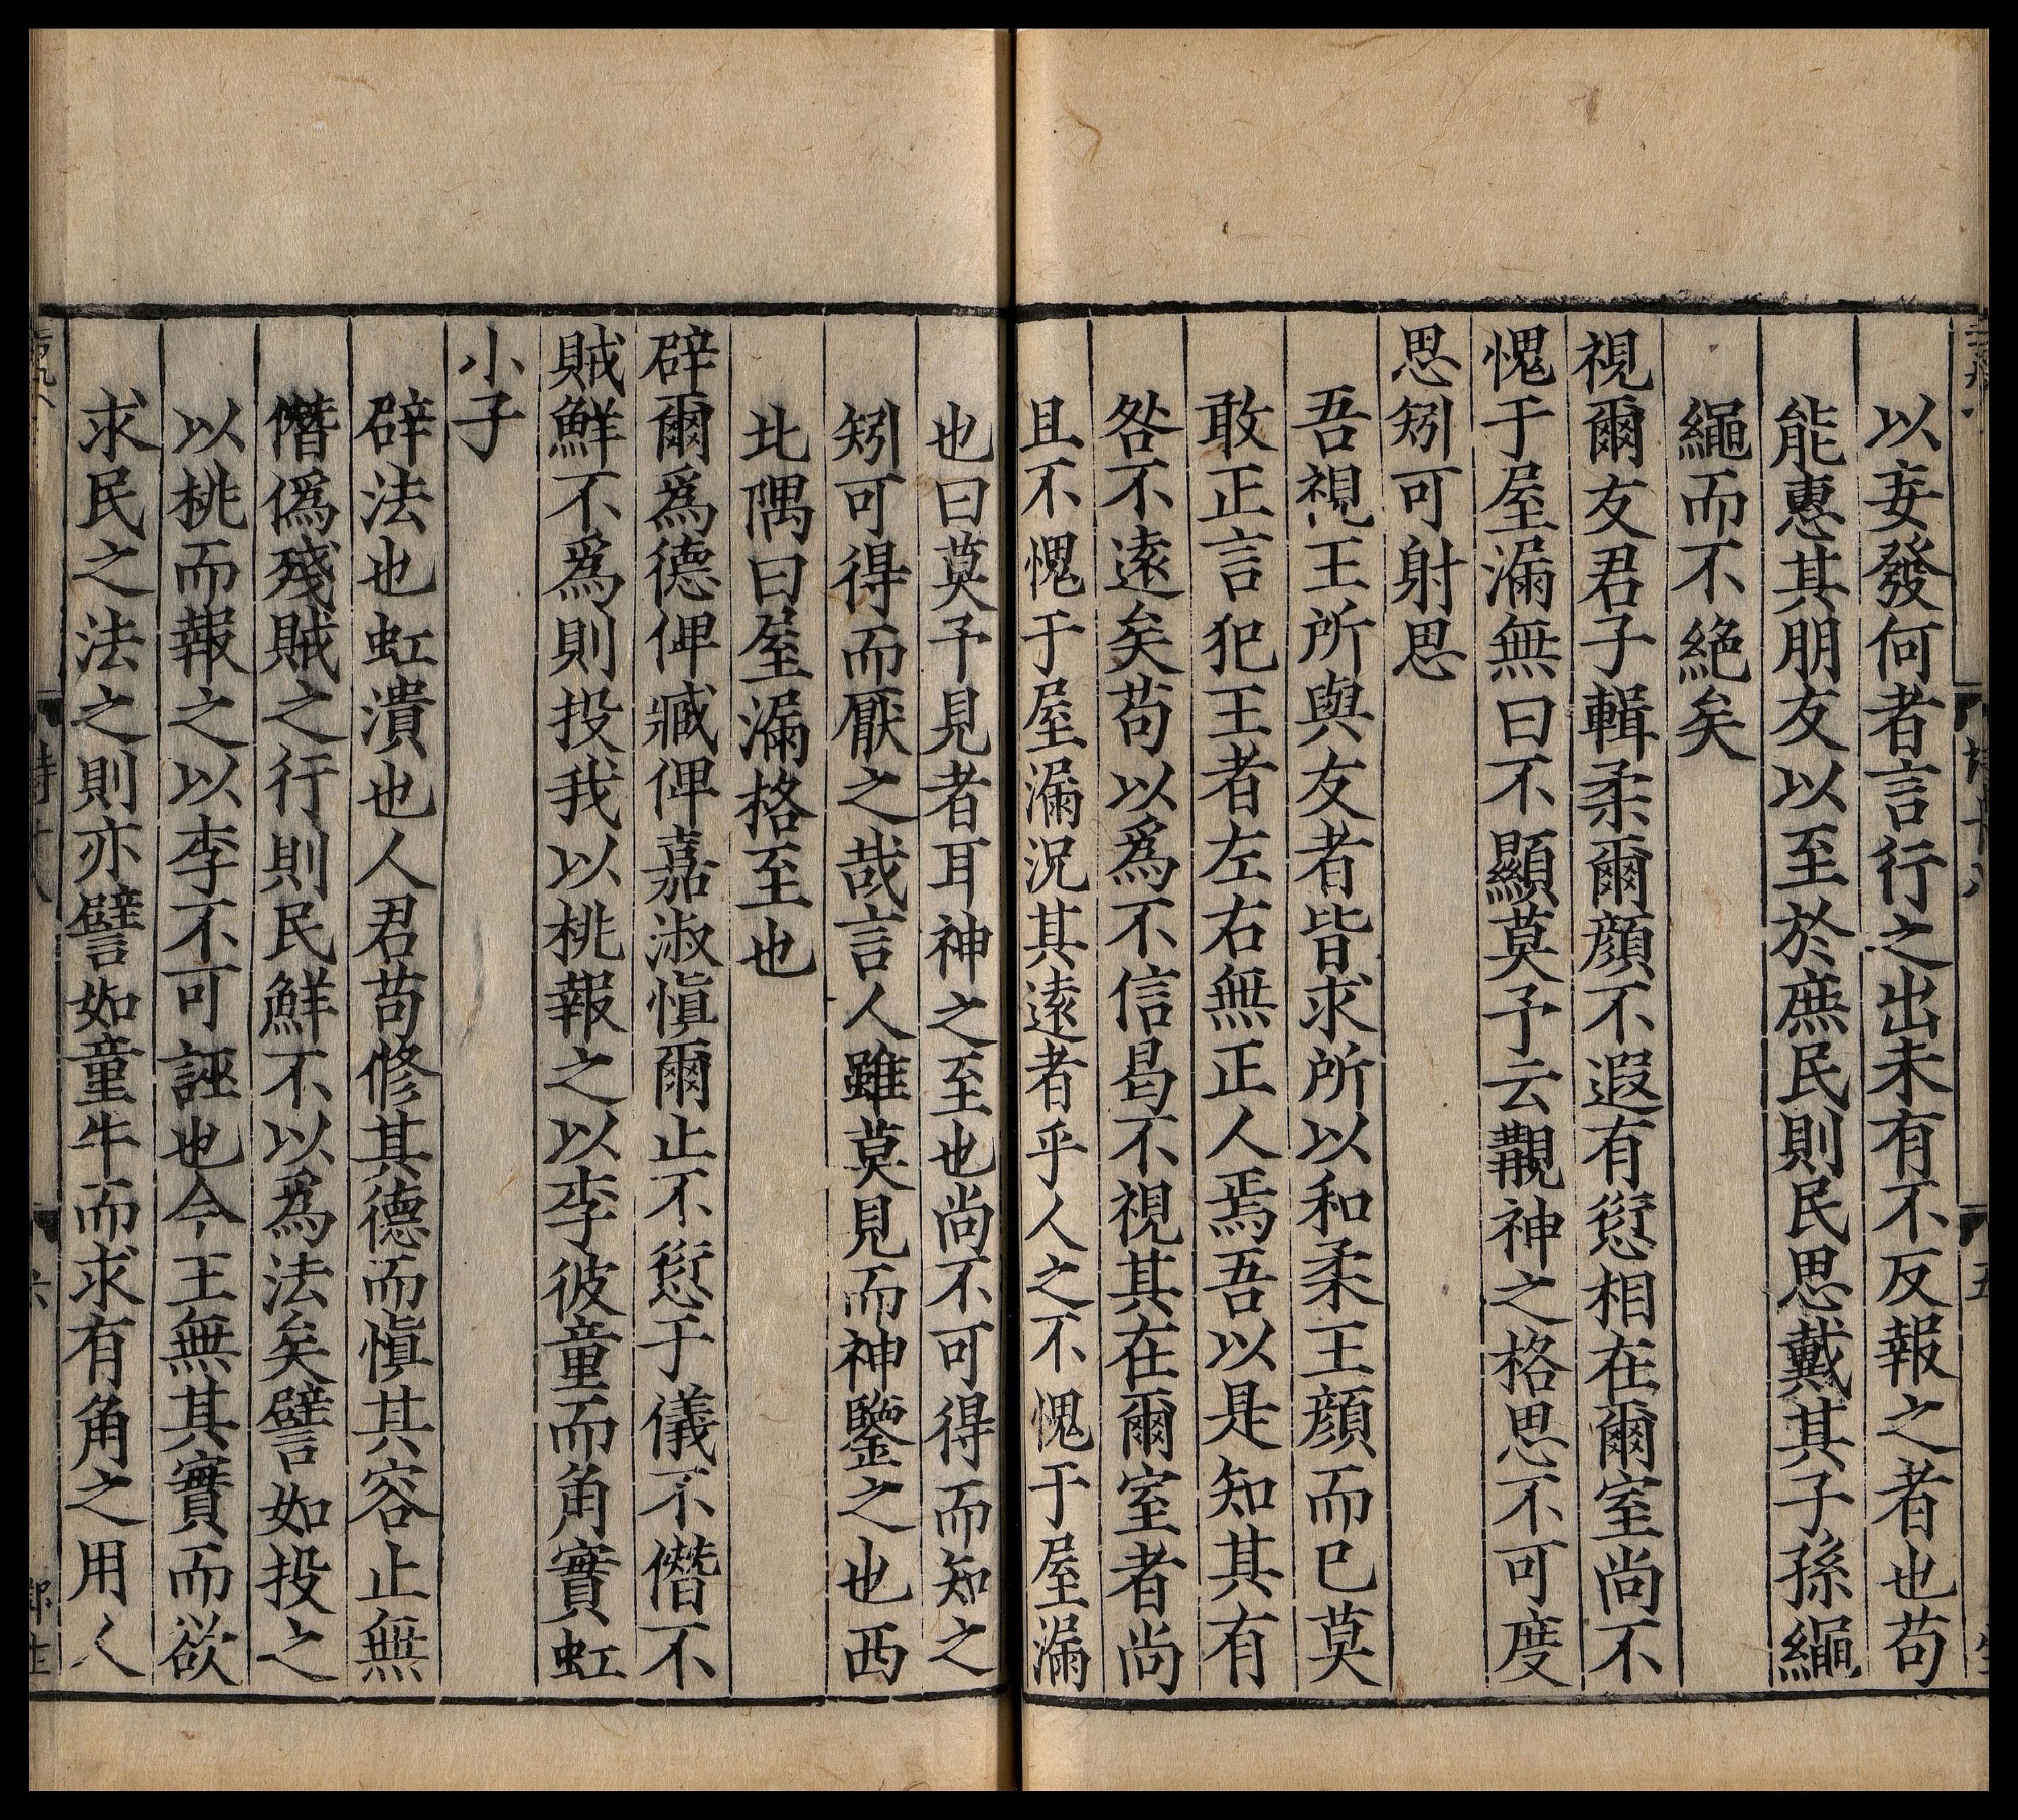 以妄發何者言行之出未有不反報之者也苟
能惠其朋友以至於庶民則民思戴其子孫繩
繩而不絕矣
視爾友君子輯柔爾顏不遐有愆相在爾室尚不
愧于屋漏無曰不顯莫予云覯神之格思不可度
思矧可射思
吾視王所與友者皆求所以和柔王顏而已莫
敢正言犯王者左右無正人焉吾以是知其有
咎不遠矣苟以為不信曷不視其在爾室者尚
且不愧于屋漏況其遠者乎人之不愧于屋漏
也曰莫予見者耳神之至也尚不可得而知之
矧可得而厭之哉言人雖莫見而神鑒之也西
北隅曰屋漏格至也
辟爾爲德俾臧俾嘉淑慎爾止不愆于儀不僭不
賊鮮不爲則投我以桃報之以李彼童而角實虹
小子
辟法也虹潰也人君苟修其德而慎其容止無
僭僞殘賊之行則民鮮不以爲法矣譬如投之
以桃而報之以李不可誣也今王無其實而欲
求民之法之則亦譬如童牛而求有角之用人